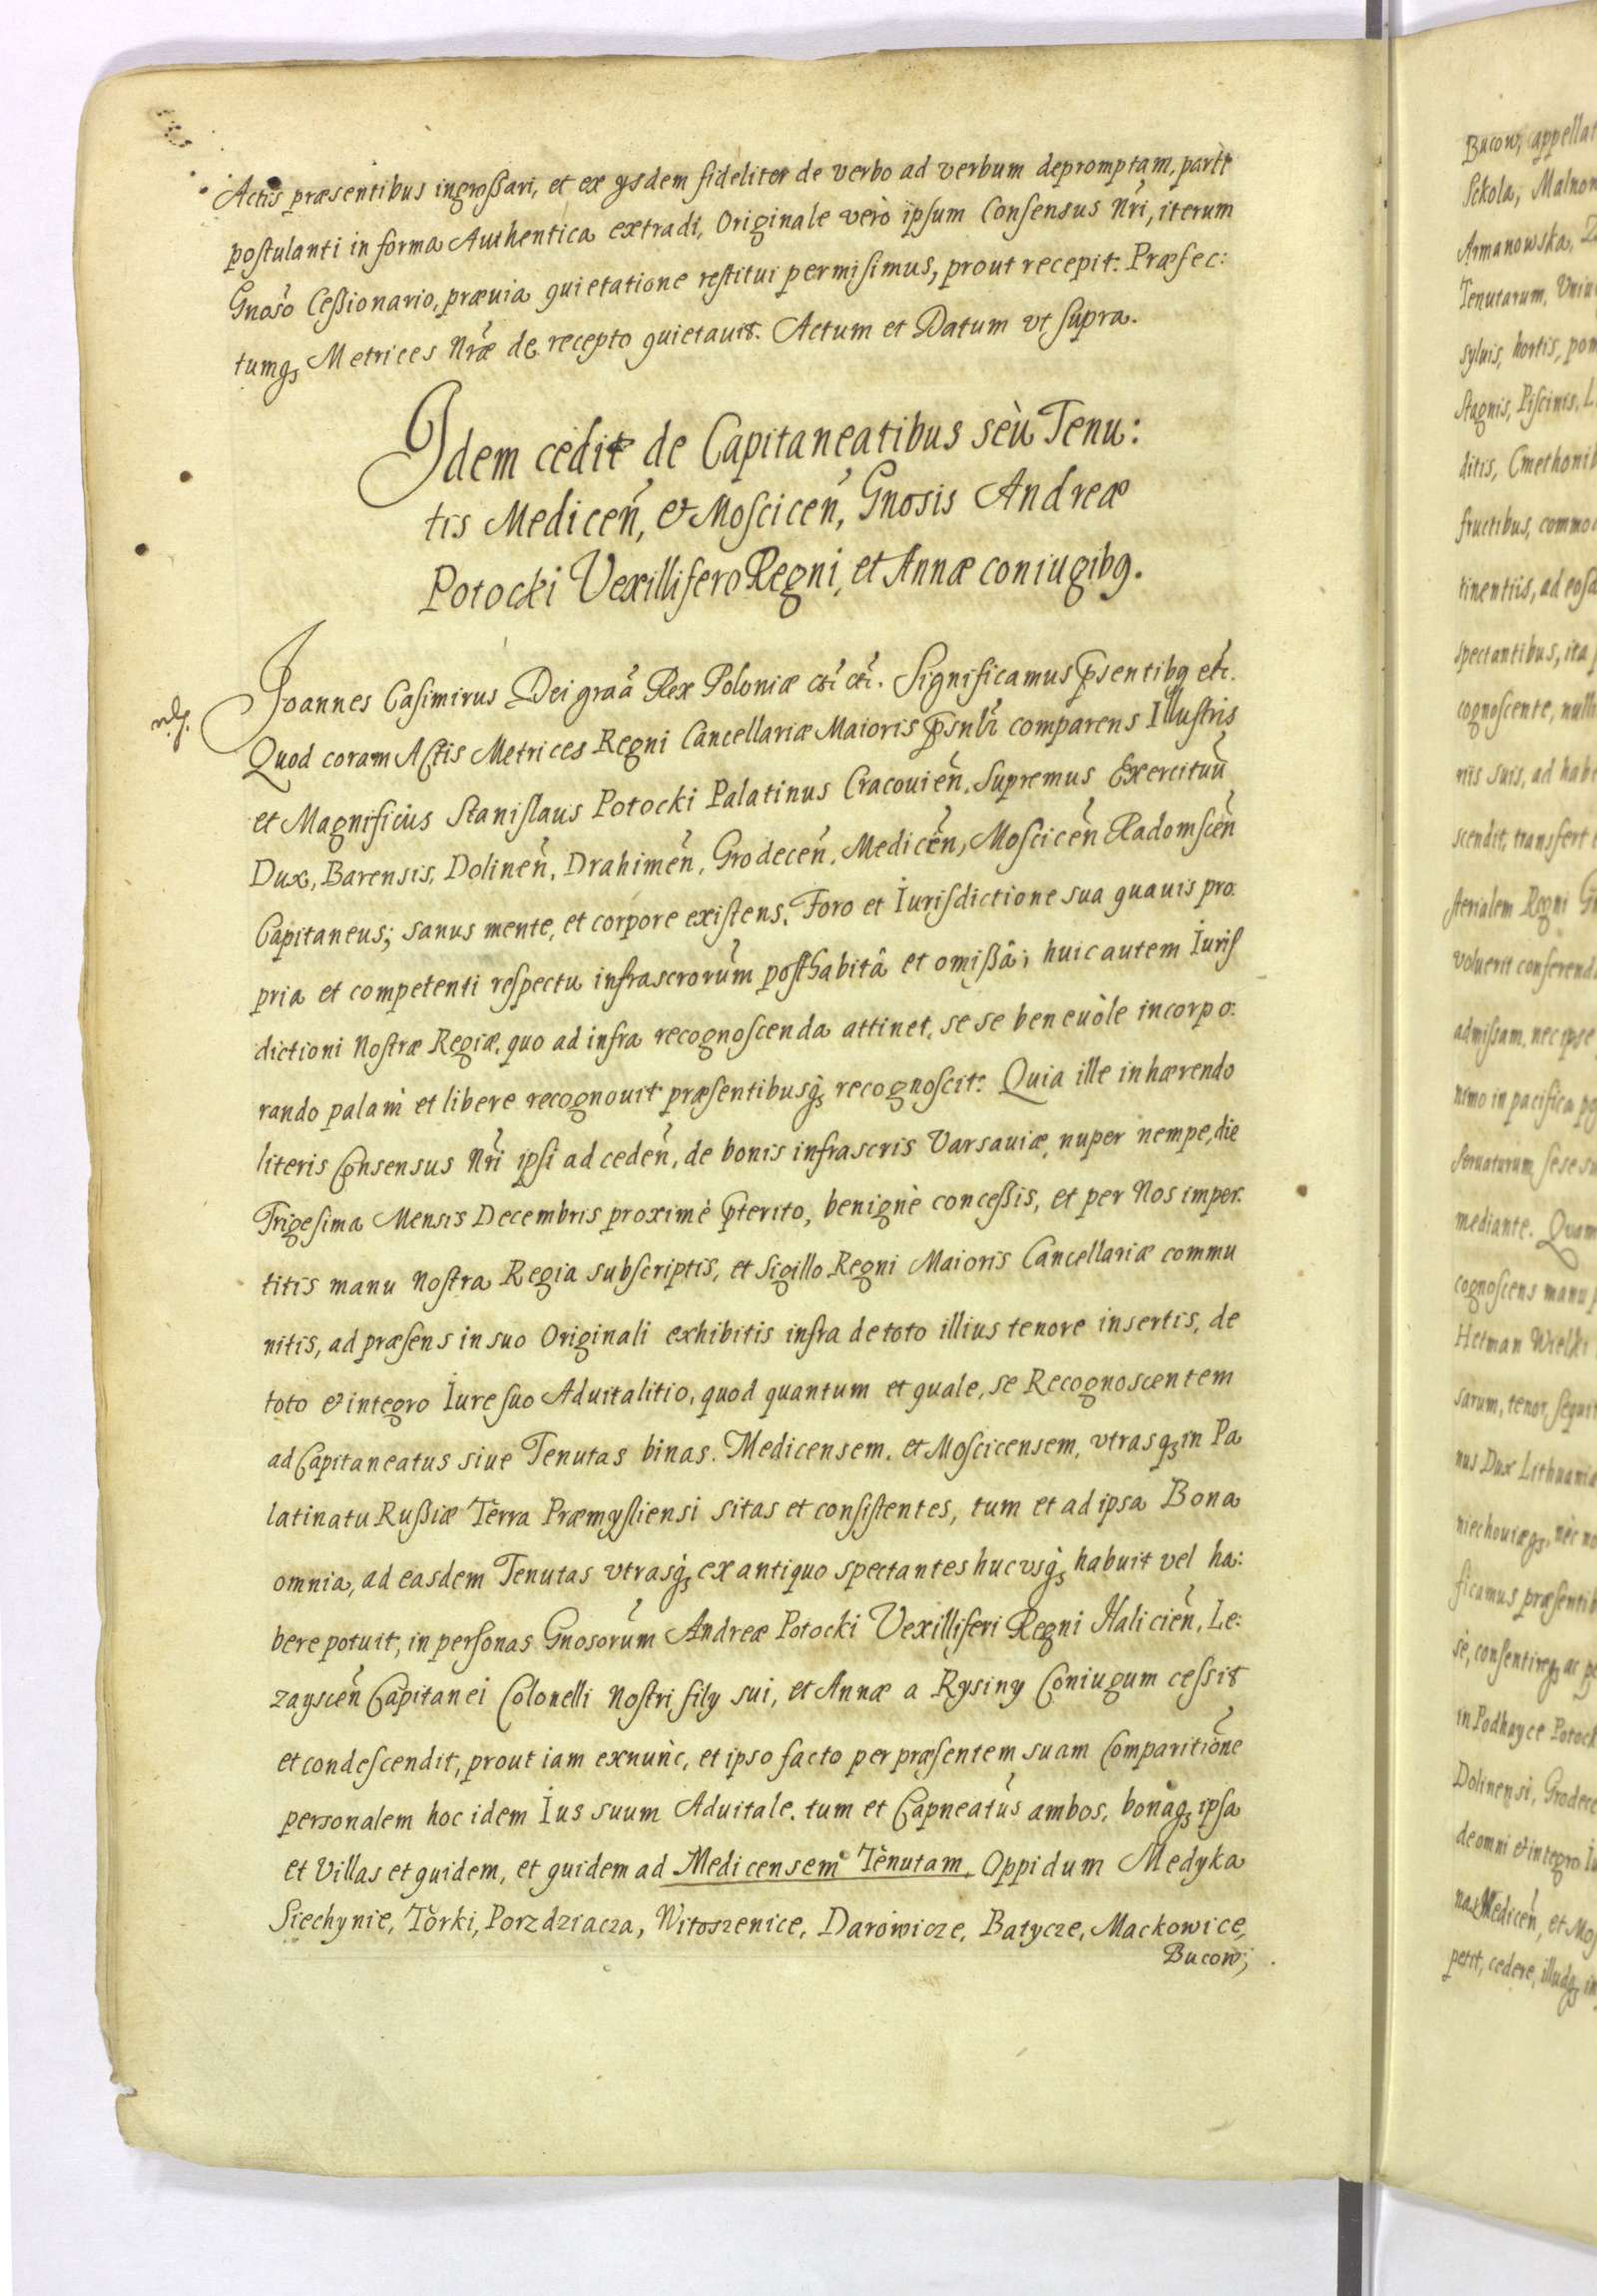 Actis præsentibus ingroßari, et ex ysdem fideliter de verbo ad verbum depromptam, parti
postulanti in forma Authentica extradi, Originale verò ipsum Consensus Nri, iterum
Gnoso Ceßionario, præuia quietatione restitui permisimus, prout recepit. Præfec:
tumq Metrices Nræ de recepto quietauit. Actum et Datum vt supra.
Idem cedit de Capitaneatibus seù Tenu:
tis Medicen, et Moscicen, Gnosis Andreæ
Potocki Vexillifero Regni, et Annæ coniugibq.
Joannes Casimirus Dei graa Rex Poloniæ etc etc. Significamus psentibq etc.
Quod coram Actis Metrices Regni Cancellariæ Maioris psnlr comparens Illustris
et Magnificus Stanislaus Potocki Palatinus Cracouien, Supremus Exercituu
Dux, Barensis, Dolinen, Drahimen, Grodecen, Medicen, Moscicen Radomscen
Capitaneus; sanus mente, et corpore existens, Foro et Iurisdictione sua quauis pro:
pria et competenti respectu infrascrorum posthabitâ et omißâ; huic autem Iuris
dictioni Nostræ Regiæ, quo ad infra recognoscenda attinet, se se beneuòle incorpo:
rando palam et libere recognouit præsentibusq recognoscit: Quia ille inhærendo
literis Consensus Nri ipsi ad ceden, de bonis infrascris Varsauiæ, nuper nempe, die
Trigesima Mensis Decembris proximè pterito, benignè conceßis, et per Nos imper:
titis manu Nostra Regia subscriptis, et Sigillo Regni Maioris Cancellariæ commu
nitis, ad præsens in suo Originali exhibitis infra de toto illius tenore insertis, de
toto et integro Iure suo Aduitalitio, quod quantum et quale, se Recognoscentem
ad Capitaneatus siue Tenutas binas. Medicensem, et Moscicensem, vtrasq in Pa
latinatu Rußiæ Terra Præmysliensi sitas et consistentes, tum et ad ipsa Bona
omnia, ad easdem Tenutas vtrasq ex antiquo spectantes hucusq habuit vel ha:
bere potuit, in personas Gnosorum Andreæ Potocki Vexilliferi Regni Halicien, Le:
zayscen Capitanei Colonelli Nostri fily sui, et Annæ a Rysiny Coniugum cessit
et condescendit, prout iam exnunc, et ipso facto per præsentem suam Comparitione
personalem hoc idem Ius suum Aduitale, tum et Capneatus ambos, bonaq ipsa
et Villas et quidem, et quidem ad Medicensem Tenutam, Oppidum Medyka
Siechynie, Torki, Porzdziacza, Witoszenice, Darowicze, Batycze, Mackowice,
Bucow;
Bucow, appellat
Sekola,
Armanowska,
Tenutarum,
syluis, hortis, pom
stagnis, Piscinis, L
ditis, Cmethonib
fructibus, commo
tinentiis, ad eosd
spectantibus, ita
cognoscente, null
riis suis, ad habe
scendit, transfert
sterialem Regni
voluerit conferend
admissam, nec ipse
nimo in pacifica
seruaturum sese su
mediante. Quam
cognoscens manu
Hetman Wielki
sarum, tenor sequit
nus Dux Lithuania
nec no
ficamus præsentib
sè, consentireq ac
in Podhayce Potock
Dolinensi, Grodece
de omni et integro Iu
nas Medicen, et Mos
petit, cedere, illudq in